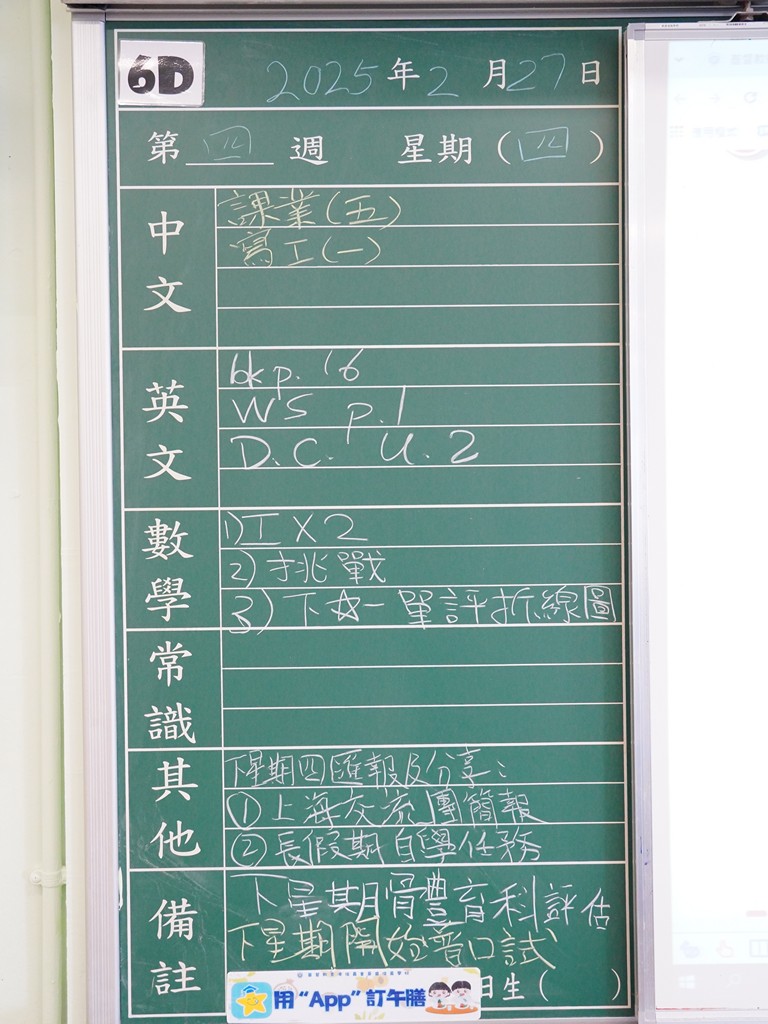 6D
2025年2月27日
第四週 星期(四)
中文
課業(五)
寫工(一)
英文
bk p. 16
WS p.1
D.C. U.2
數學
1)工X2
2)挑戰
3)下☆一單評折線圖
常識
其他
下星期四匯報及分享:
①上海交流團簡報
②長假期自學任務
備註
下星期體育科評估
下星期開始音口試
日生( )
用“App”訂午膳